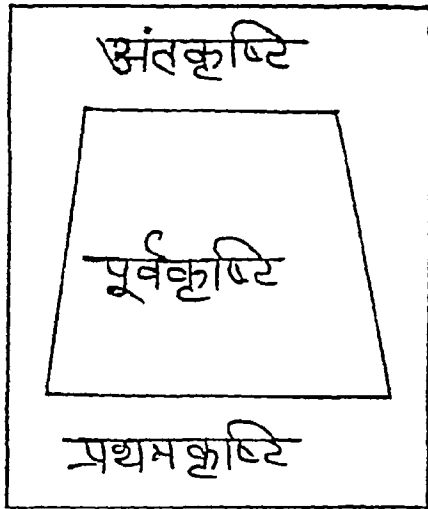 अंतकृष्टि
पूर्वकृष्टि
प्रथमकृष्टि